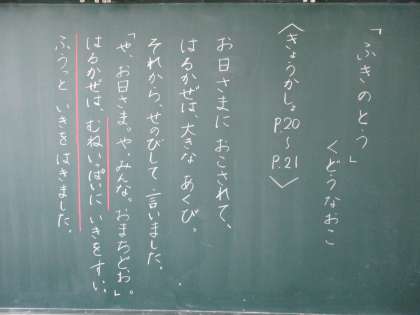 「ふきのとう」
くどうなおこ
〈きょうかしょ P.20 ~ P.21〉
お日さまに おこされて、
はるかぜは、大きな あくび。
それから、せのびして 言いました。
「や、お日さま。や、みんな。おまちどお」。
はるかぜは、むねいっぱいに いきをすい、
ふうっと いきを はきました。